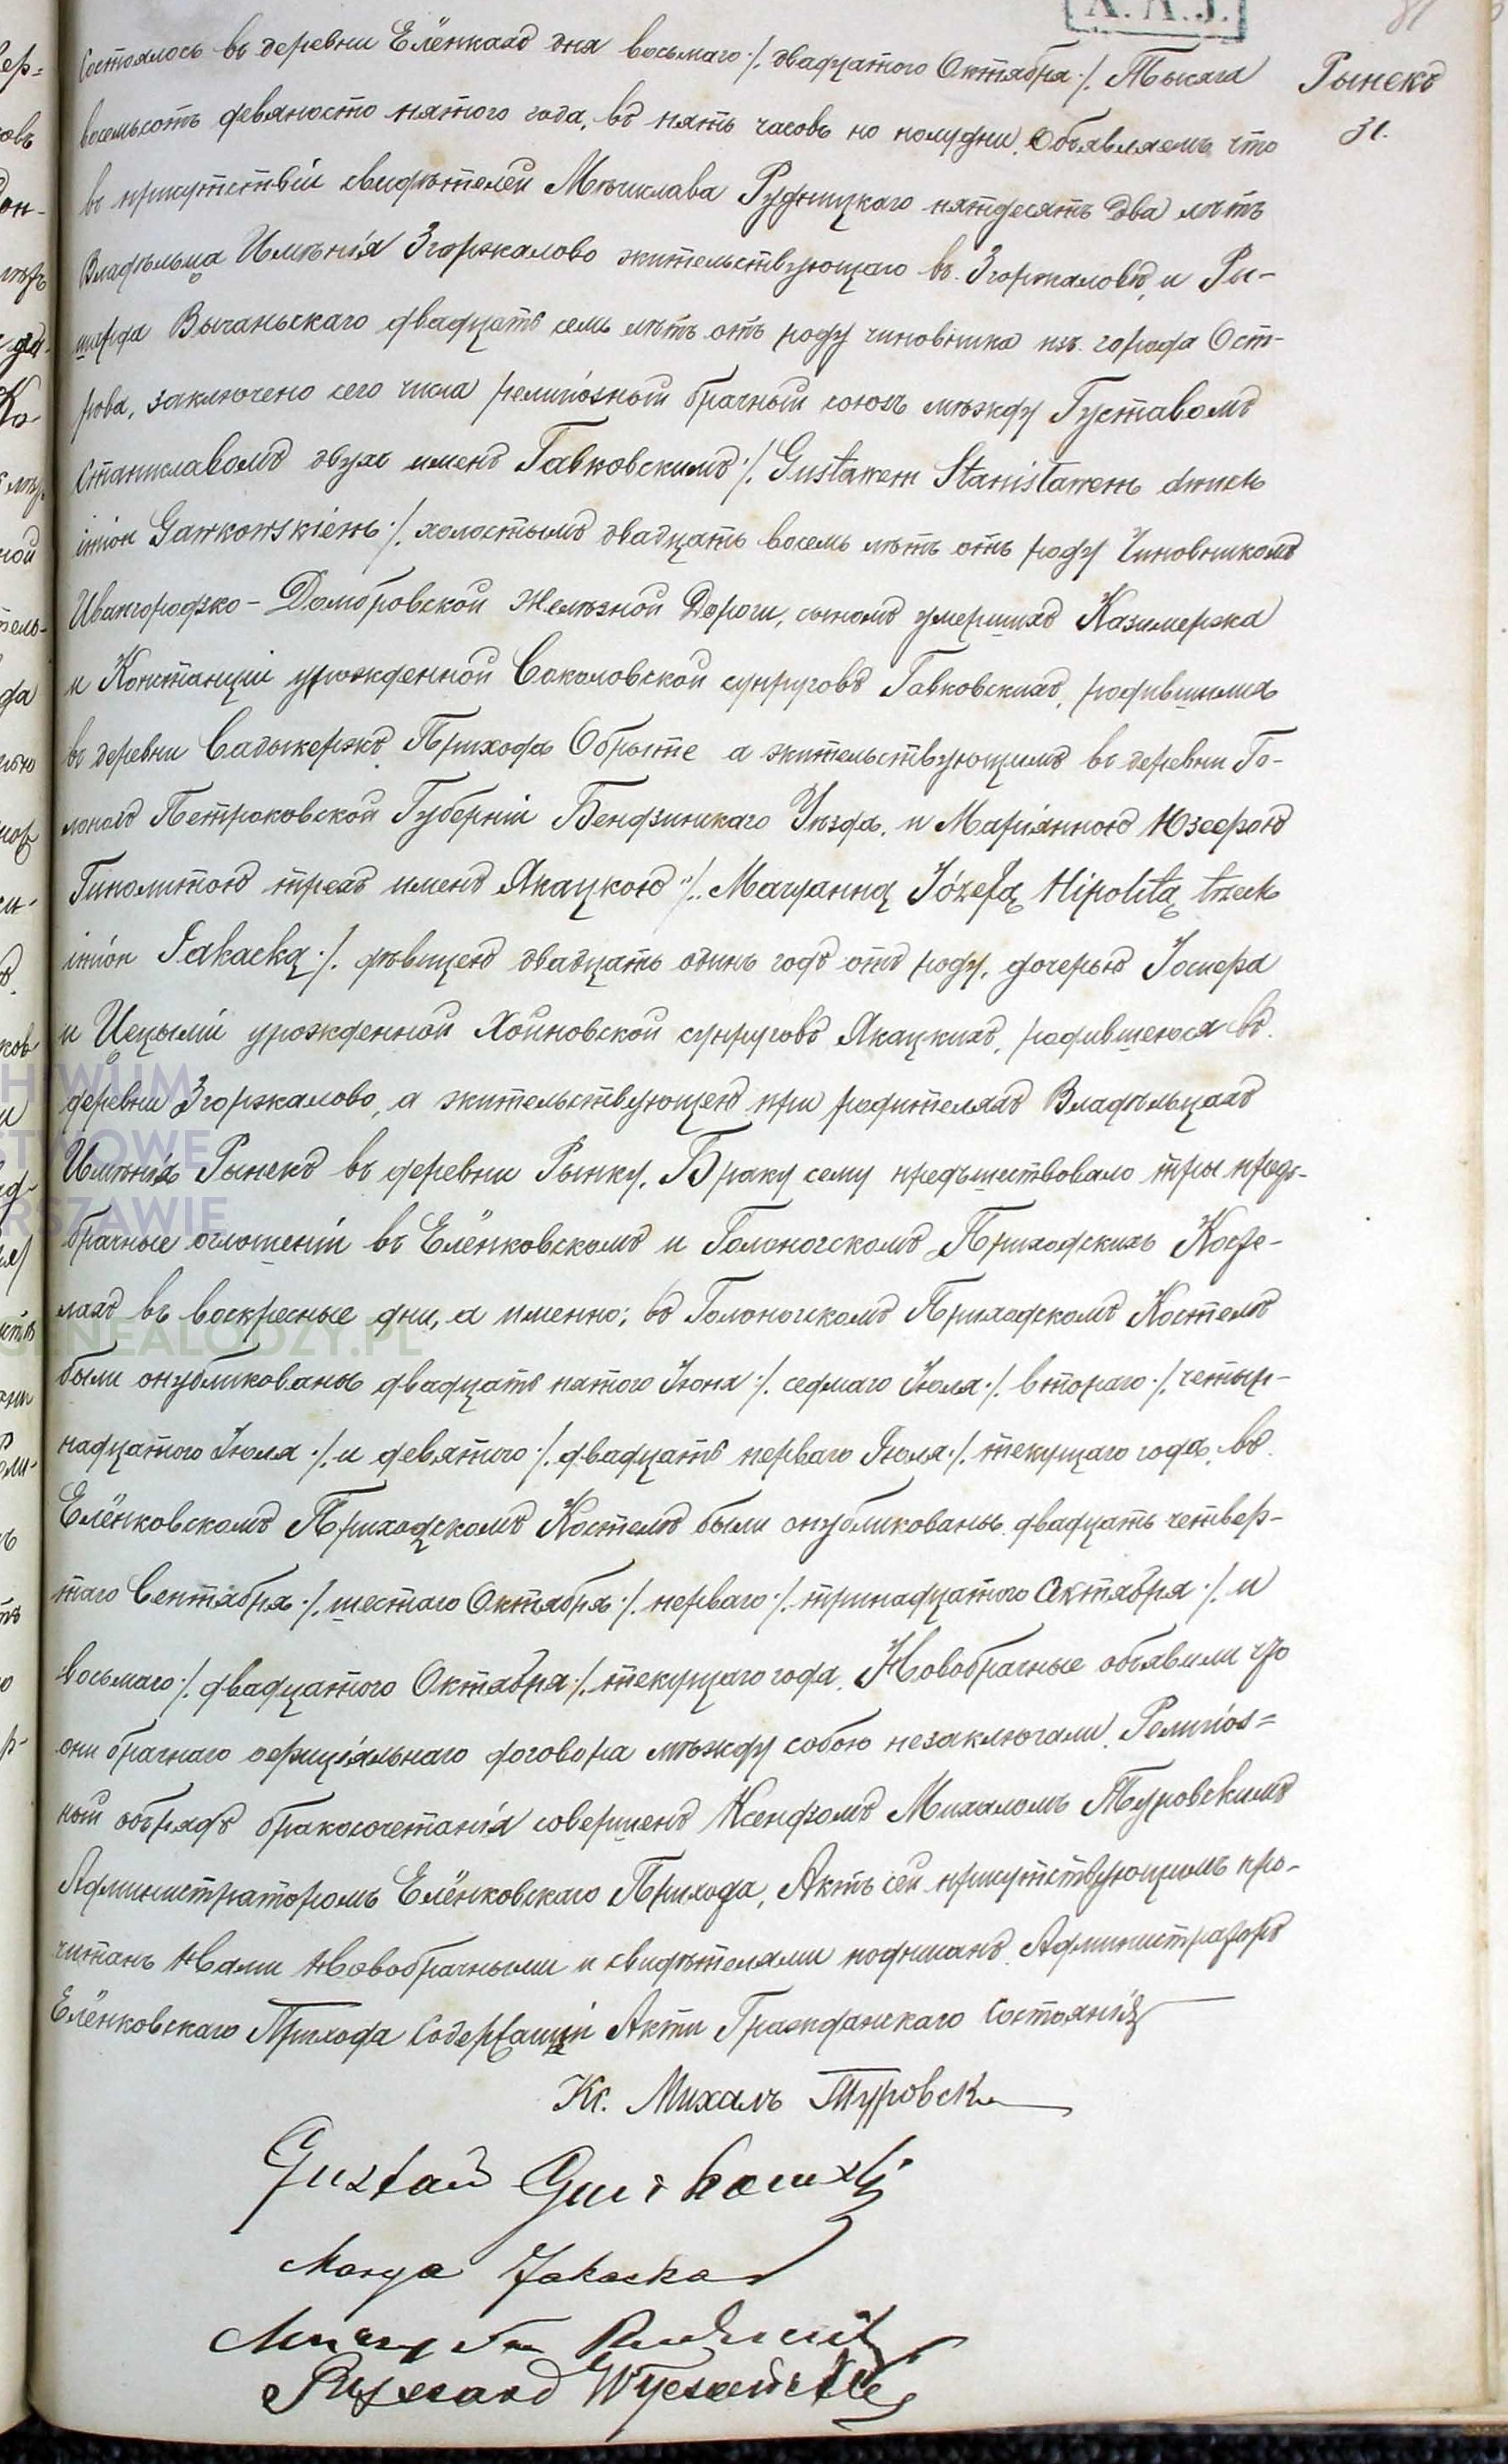 X. A. J.
81
Рынекъ
31.
Состоялось въ деревни Елёнкахъ дня восьмаго ./. двадцатого Октября ./. Тысяча
восемьсотъ девяносто пятого года, въ пять часовъ по полудни. Объявляемъ что
въ присутствіи свидѣтелей Мѣчислава Рудницкаго пятдесятъ два лѣтъ
Владѣльца Имѣнія Згоржалово жительствующаго въ Згоржаловѣ, и Ры-
шарда Вычаньскаго двадцать семь лѣтъ отъ роду чиновника изъ города Ост-
рова, заключено сего числа религіозный брачный союзъ мѣжду Густавомъ
Станиславомъ двухъ именъ Гавковскимъ ./. Gustawem Stanisławem dwuch
imion Gawkowskiém ./. холостымъ двадцать восемь лѣтъ отъ роду Чиновникомъ
Ивангородзко-Домбровской Желѣзной Дороги, сыномъ умершихъ Казимержа
и Констанціи урожденной Соколовской супруговъ Гавковскихъ, родившимся
въ деревни Садыкержъ Прихода Обрыте а жительствующимъ въ деревни Го-
лоногъ Петроковской Губерніи Бендзинскаго Уѣзда, и Маріанною Юзефою
Гиполитою трехъ именъ Якацкою ./. Maryanną Józefą Hipolitą trzech
imion Jakacką ./. дѣвицею двадцать одинъ годъ отъ роду, дочерью Іосифа
и Цецыліи урожденной Хойновской супруговъ Якацкихъ, родившеюся въ
деревни Згоржалово, а жительствующею при родителяхъ Владѣльцахъ
Имѣнія Рынекъ въ деревни Рынку. Браку сему предъшествовало три предъ-
брачные оглошеніи въ Елёнковскомъ и Голоногскомъ Приходскихъ Косце-
лахъ въ воскресные дни, а именно: въ Голоногскомъ Приходскомъ Костелѣ
были опубликованы двадцать пятого Іюня ./. седмаго Іюля ./. втораго ./. четыр-
надцатого Іюля ./. и девятого ./. двадцать перваго Іюля ./. текущаго года, въ
Елёнковскомъ Приходскомъ Костелѣ были опубликованы двадцать четвер-
таго Сентября ./. шестаго Октября ./. перваго ./. тринадцатого Октября ./. и
восьмаго ./. двадцатого Октября ./. текущаго года. Новобрачные объявили что
они брачнаго оефиціяльнаго договора мѣжду собою незаключали. Религіоз=
ный обърядъ бракосочетанія совершенъ Ксендзомъ Михаломъ Туровскимъ
Администраторомъ Елёнковскаго Прихода. Актъ сей присутствующимъ про-
читанъ Нами Новобрачными и свидѣтелями подписанъ. Администраторъ
Елёнковскаго Прихода Содержащій Акти Гражданскаго Состоянія
Кс. Михалъ Туровски
Gustaw Gawkowski
Marya Jakacka
Rudnicki
Ryszard Wyczański
GENEALODZY.PL